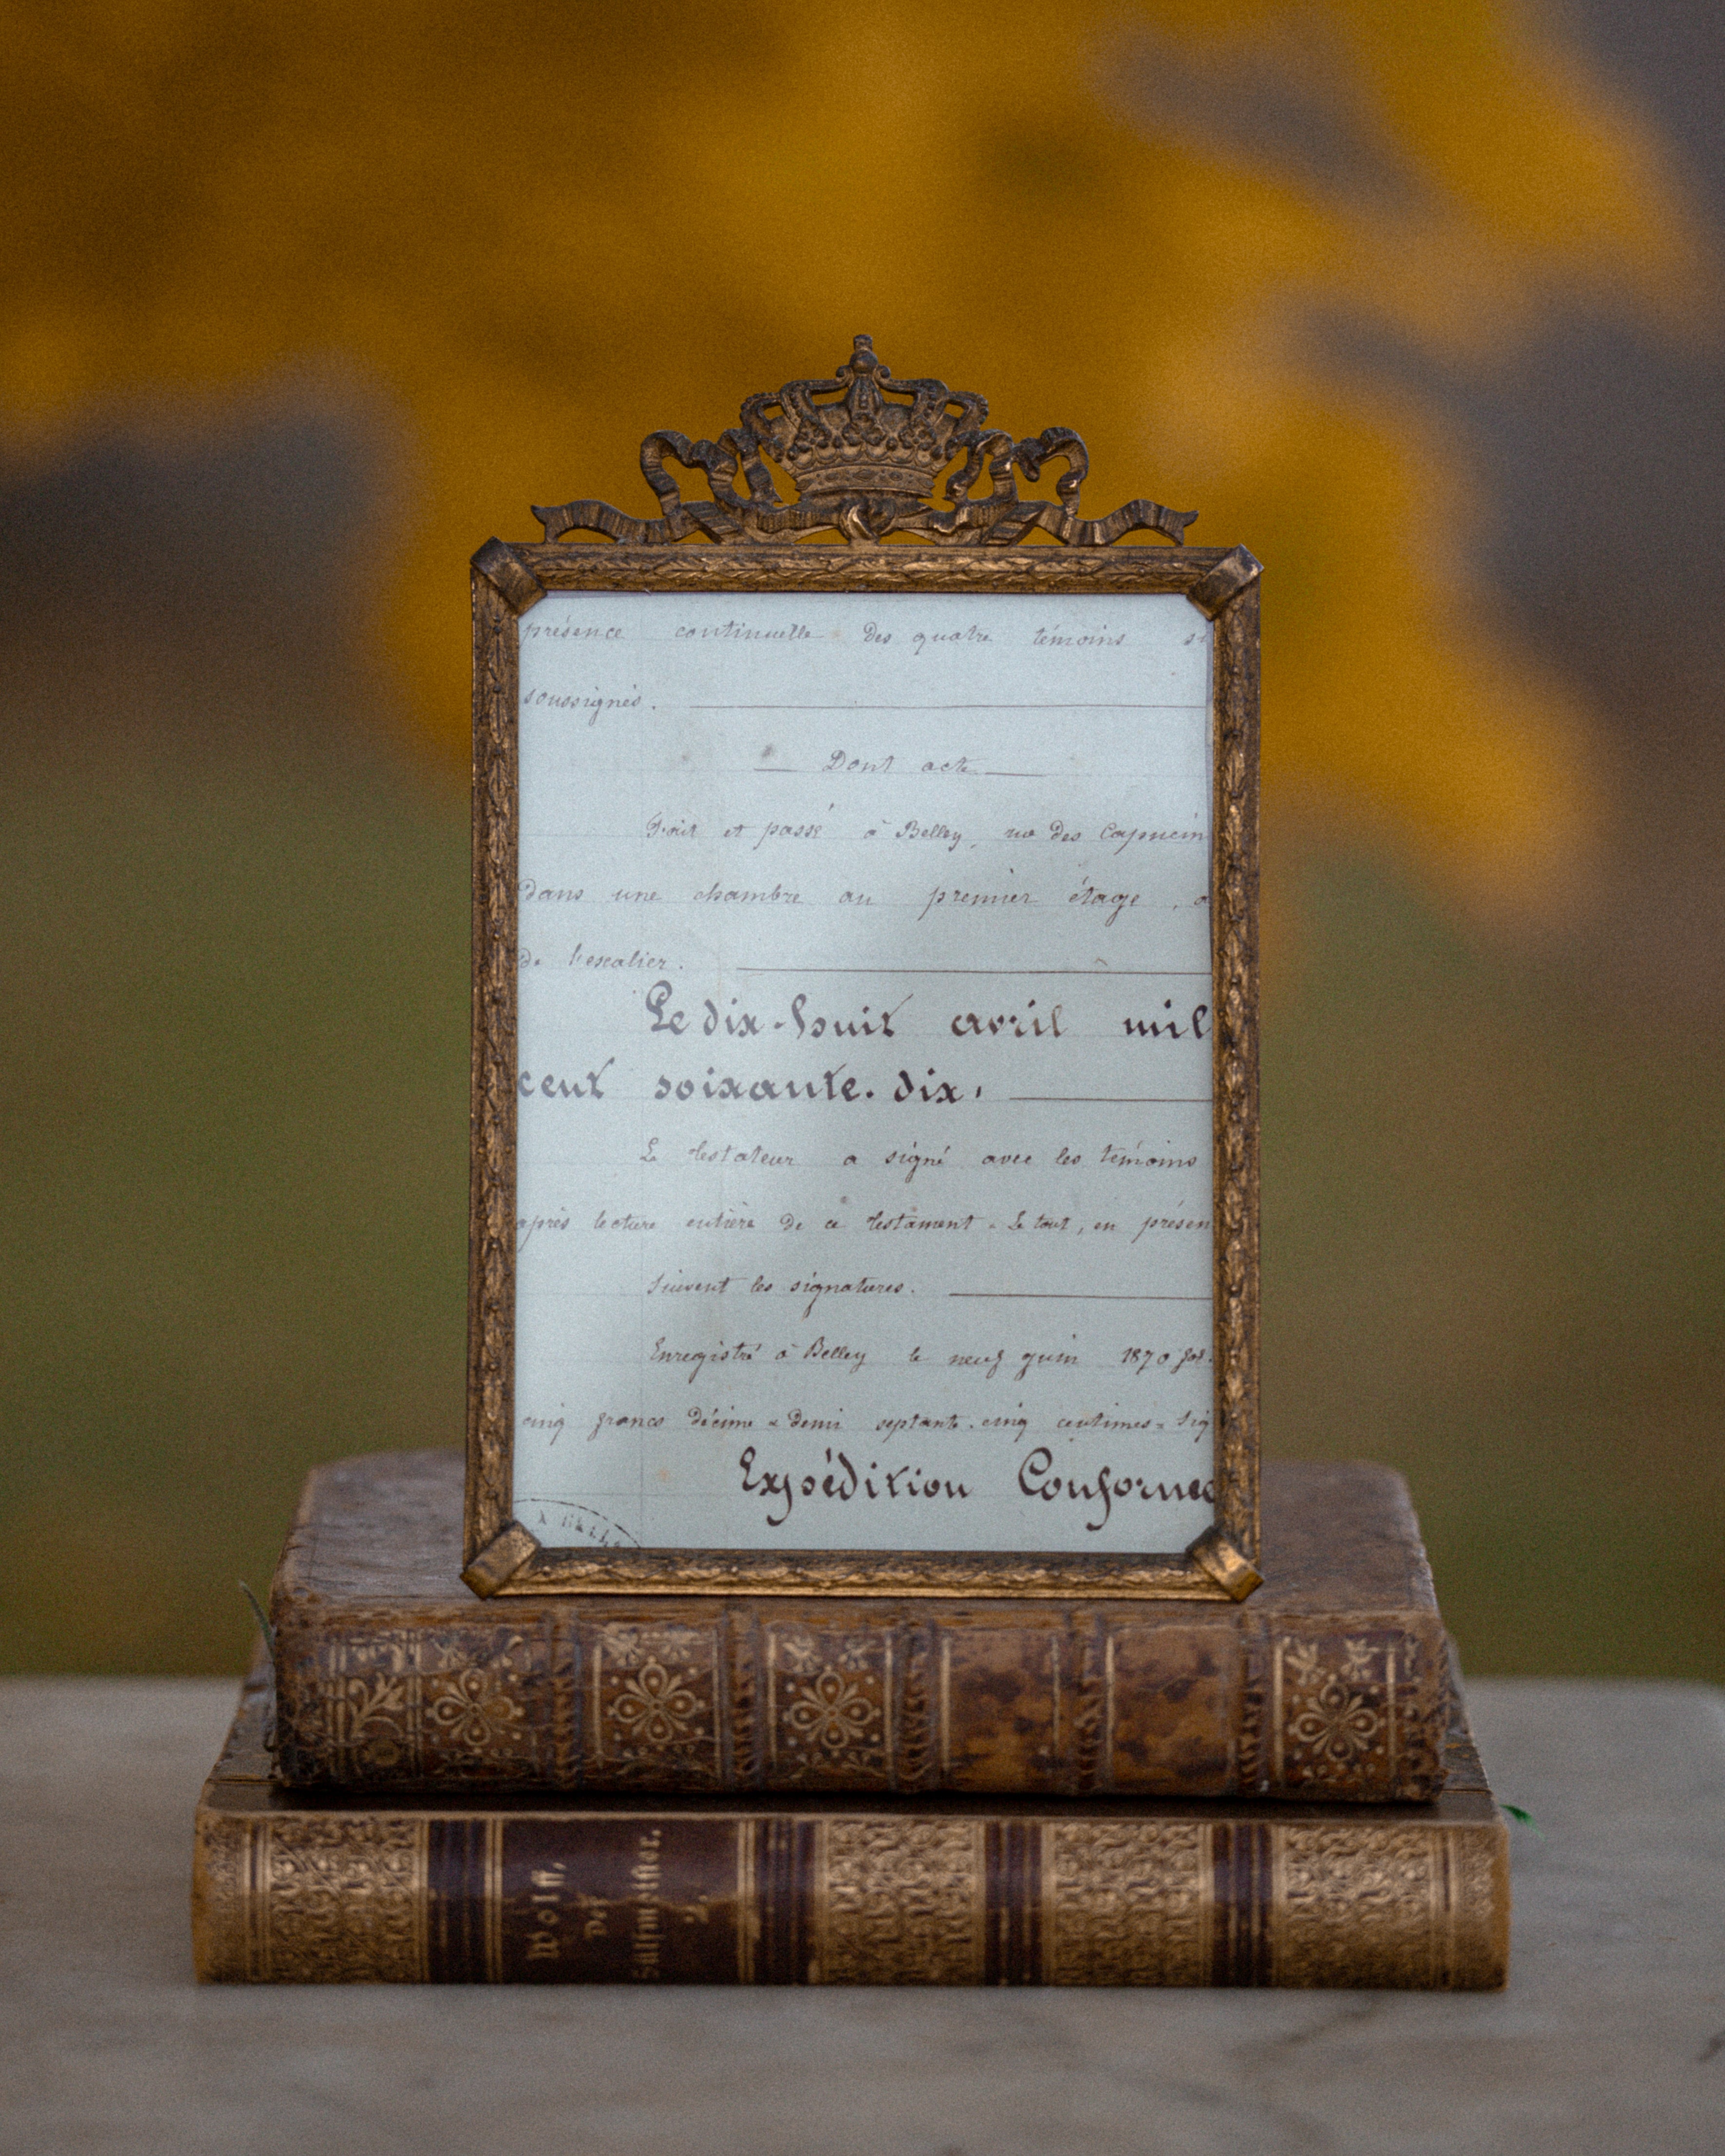 présence continuelle des quatre témoins
soussignés.
Dont acte
Fait et passé à Belley, rue des Capucin
dans une chambre au premier étage, a
de l'escalier.
Le dix-huit avril mil
cent soixante-dix,
Le testateur a signé avec les témoins
après lecture entière de ce testament - Le tout, en présen
Suivent les signatures.
Enregistré à Belley le neuf juin 1870 fol.
cinq francs décime & demi septante-cinq centimes = Sig
Expédition Conforme
Wolff,
Der
Sülfmeister.
2.